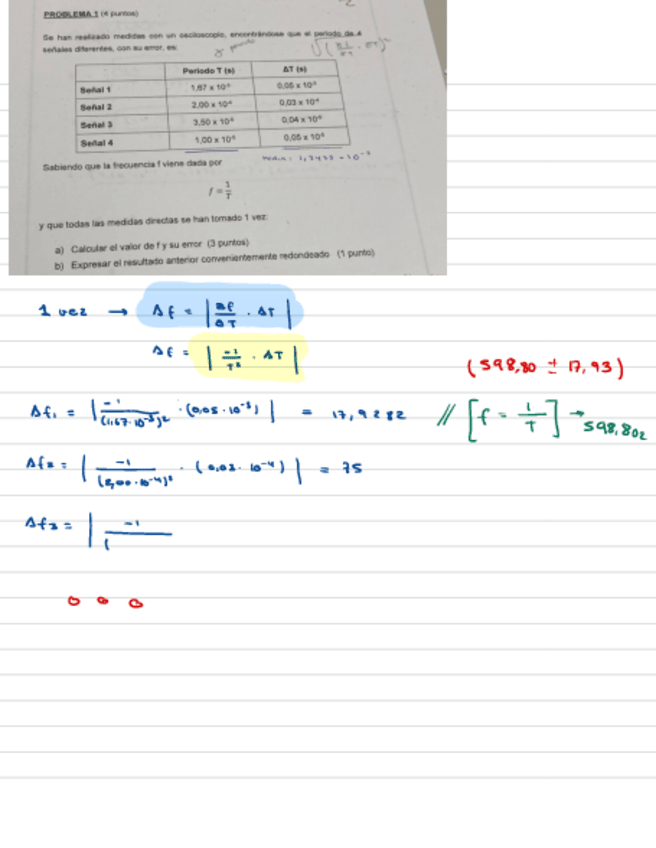 PROBLEMA 1 (4 puntos)
Se han realizado medidas con un osciloscopio, encontrándose que el periodo de 4
señales diferentes, con su error, es:
Periodo T (s) ΔT (s)
Señal 1 1,67 x 10⁻³ 0,05 x 10⁻³
Señal 2 2,00 x 10⁻⁴ 0,03 x 10⁻⁴
Señal 3
Señal 4
Sabiendo que la frecuencia f viene dada por
f = 1/T
y que todas las medidas directas se han tomado 1 vez:
a) Calcular el valor de f y su error (3 puntos)
b) Expresar el resultado anterior convenientemente redondeado (1 punto)
1 vez → Δf = | Δf/ΔT · ΔT |
Δf = | -1/T² · ΔT |
(598,80 ± 17,93)
Δf₁ = | -1/(1,67·10⁻³)² · (0,05·10⁻³) | = 17,9282 // [f = 1/T] → 598,802
Δf₂ = | -1/(2,00·10⁻⁴)² · (0,03·10⁻⁴) | = 75
Δf₃ = | -1/(